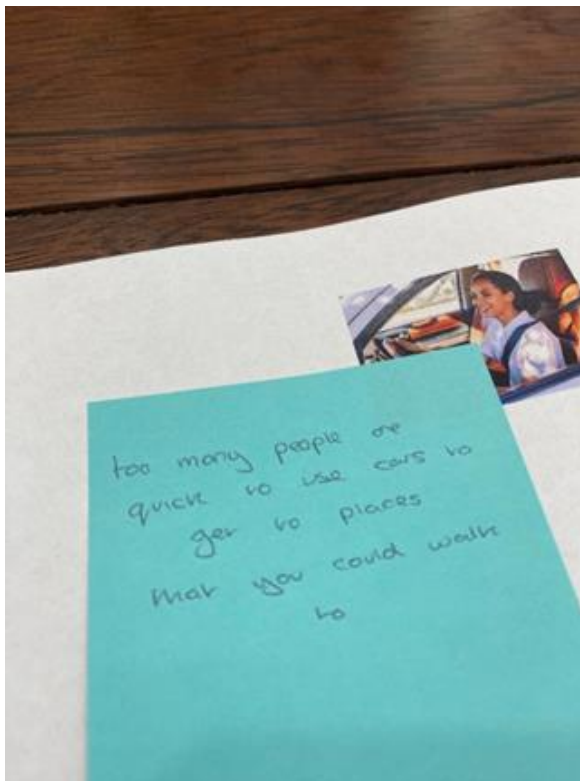 too many people are
quick to use cars to
get to places
that you could walk
to